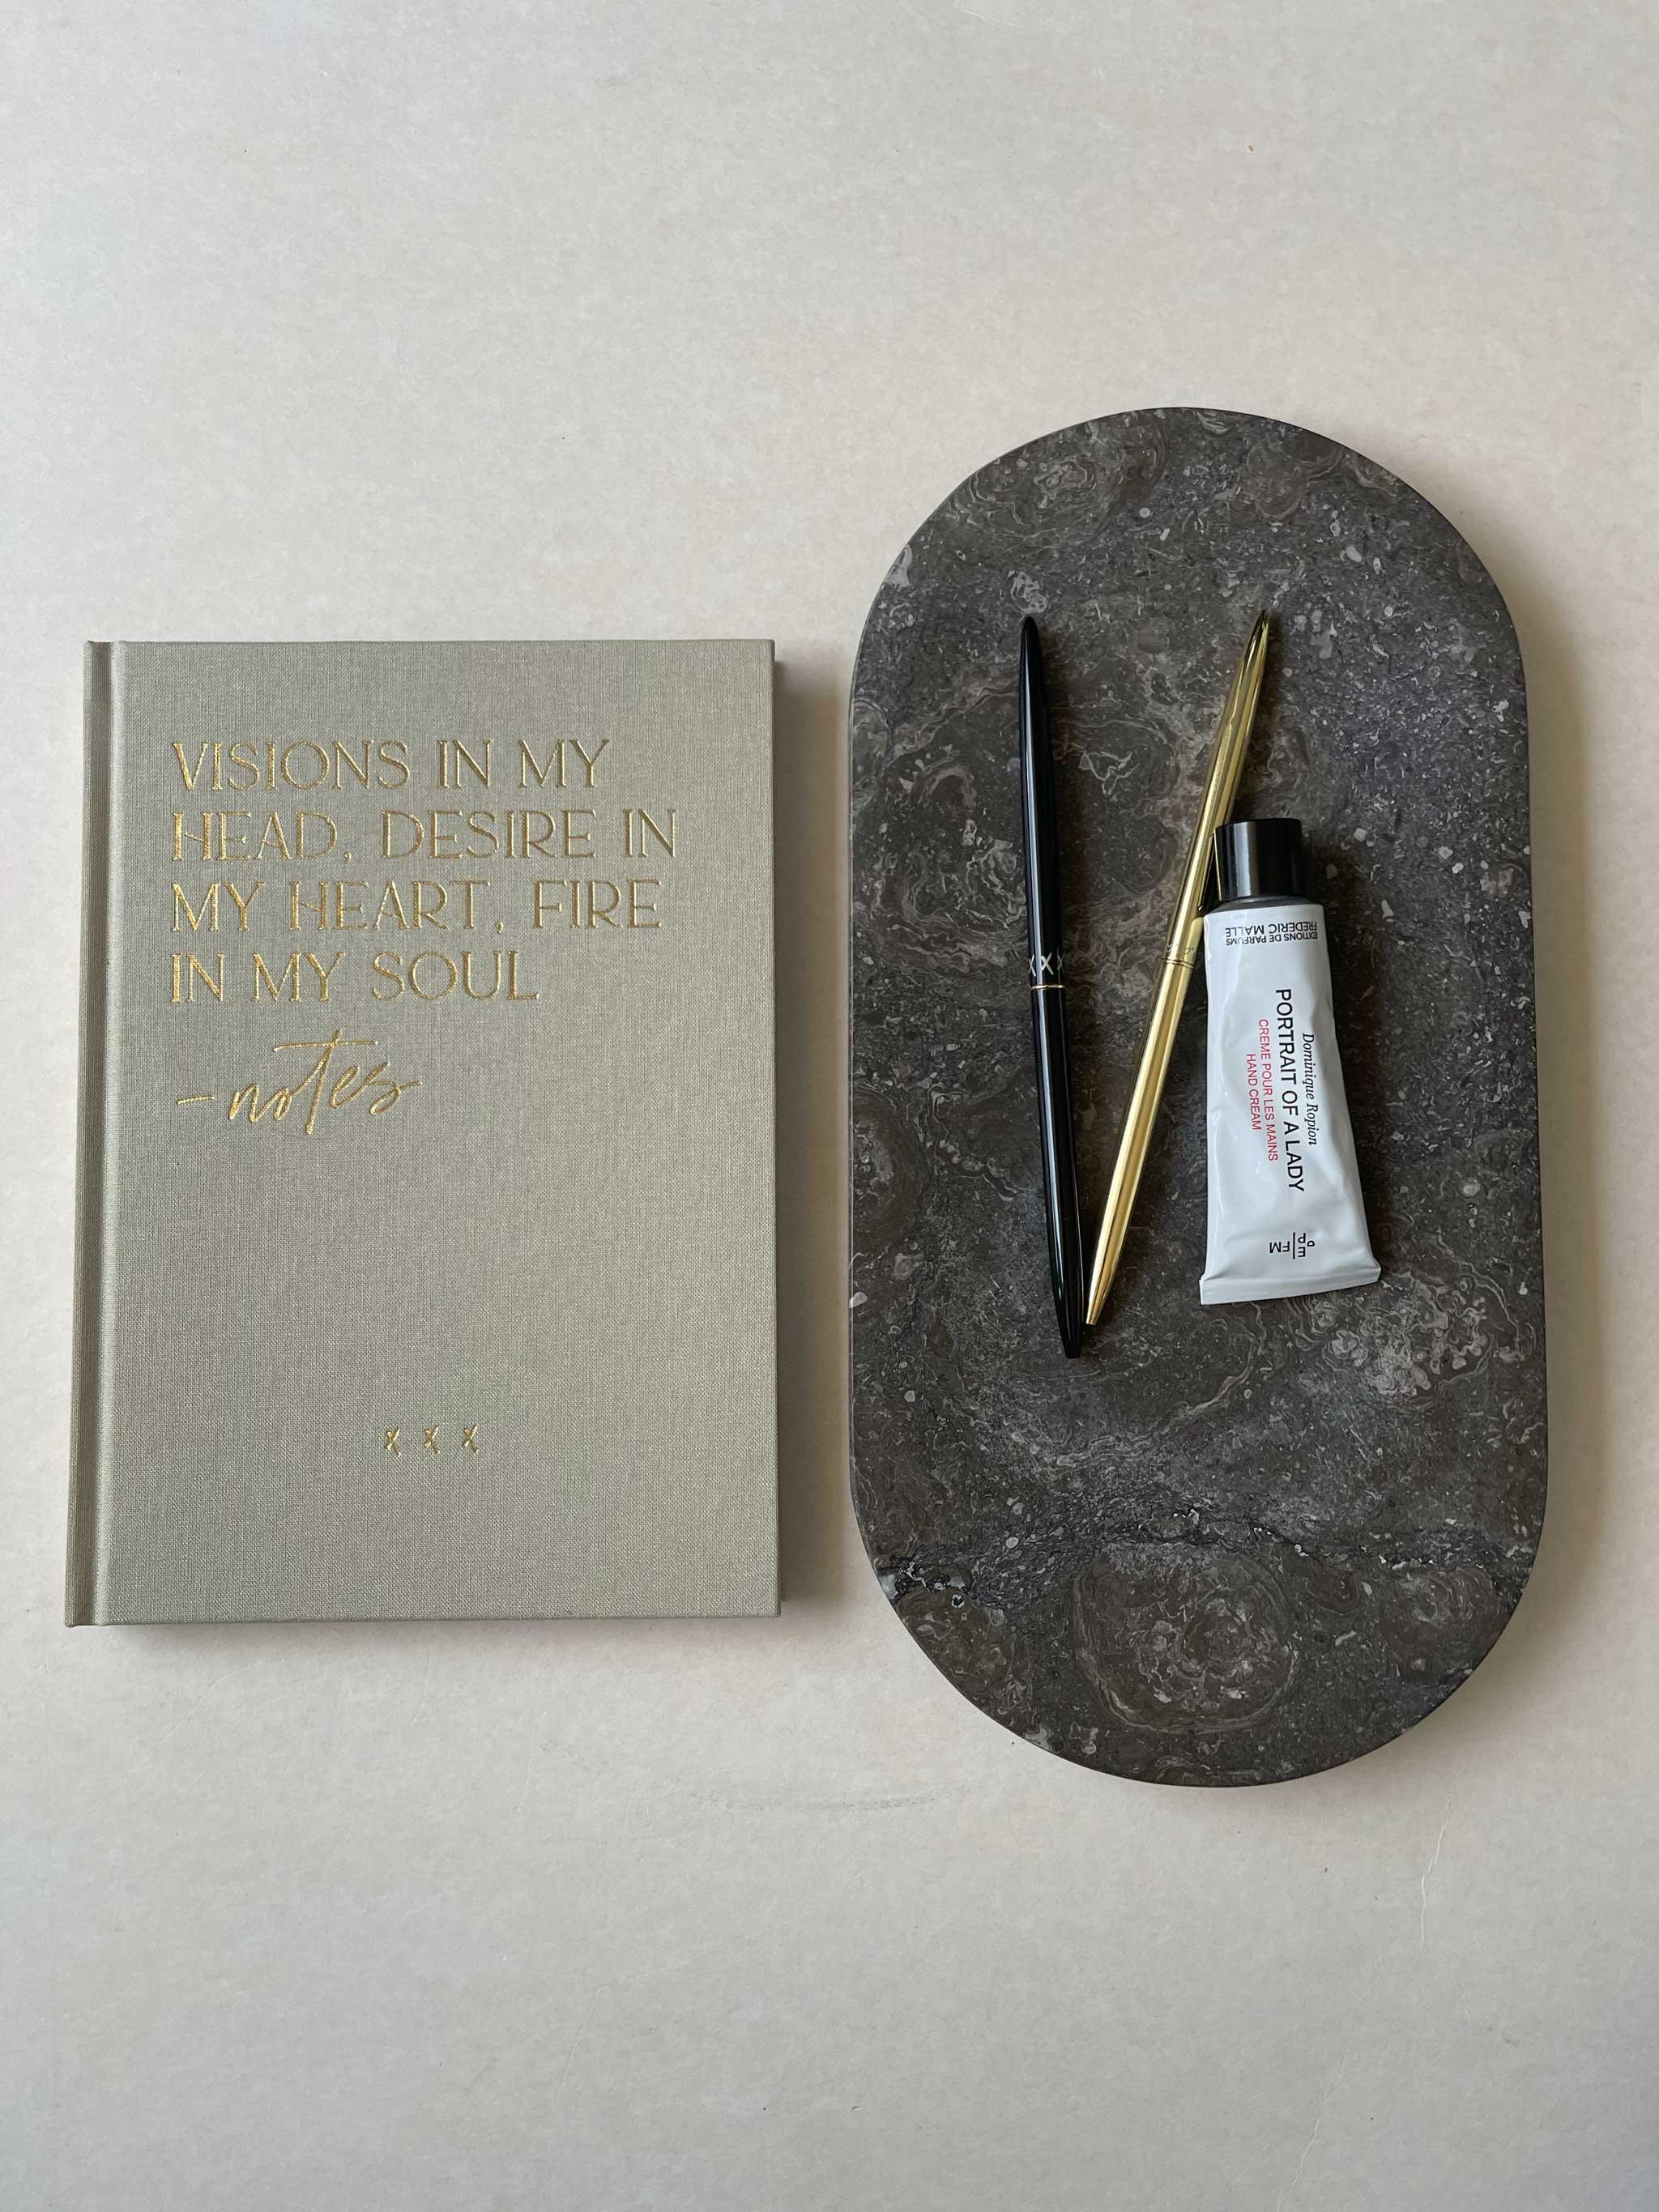 VISIONS IN MY
HEAD, DESIRE IN
MY HEART, FIRE
IN MY SOUL
-notes
x x x
XXX
EDITIONS DE PARFUMS
FREDERIC MALLE
Dominique Ropion
PORTRAIT OF A LADY
CREME POUR LES MAINS
HAND CREAM